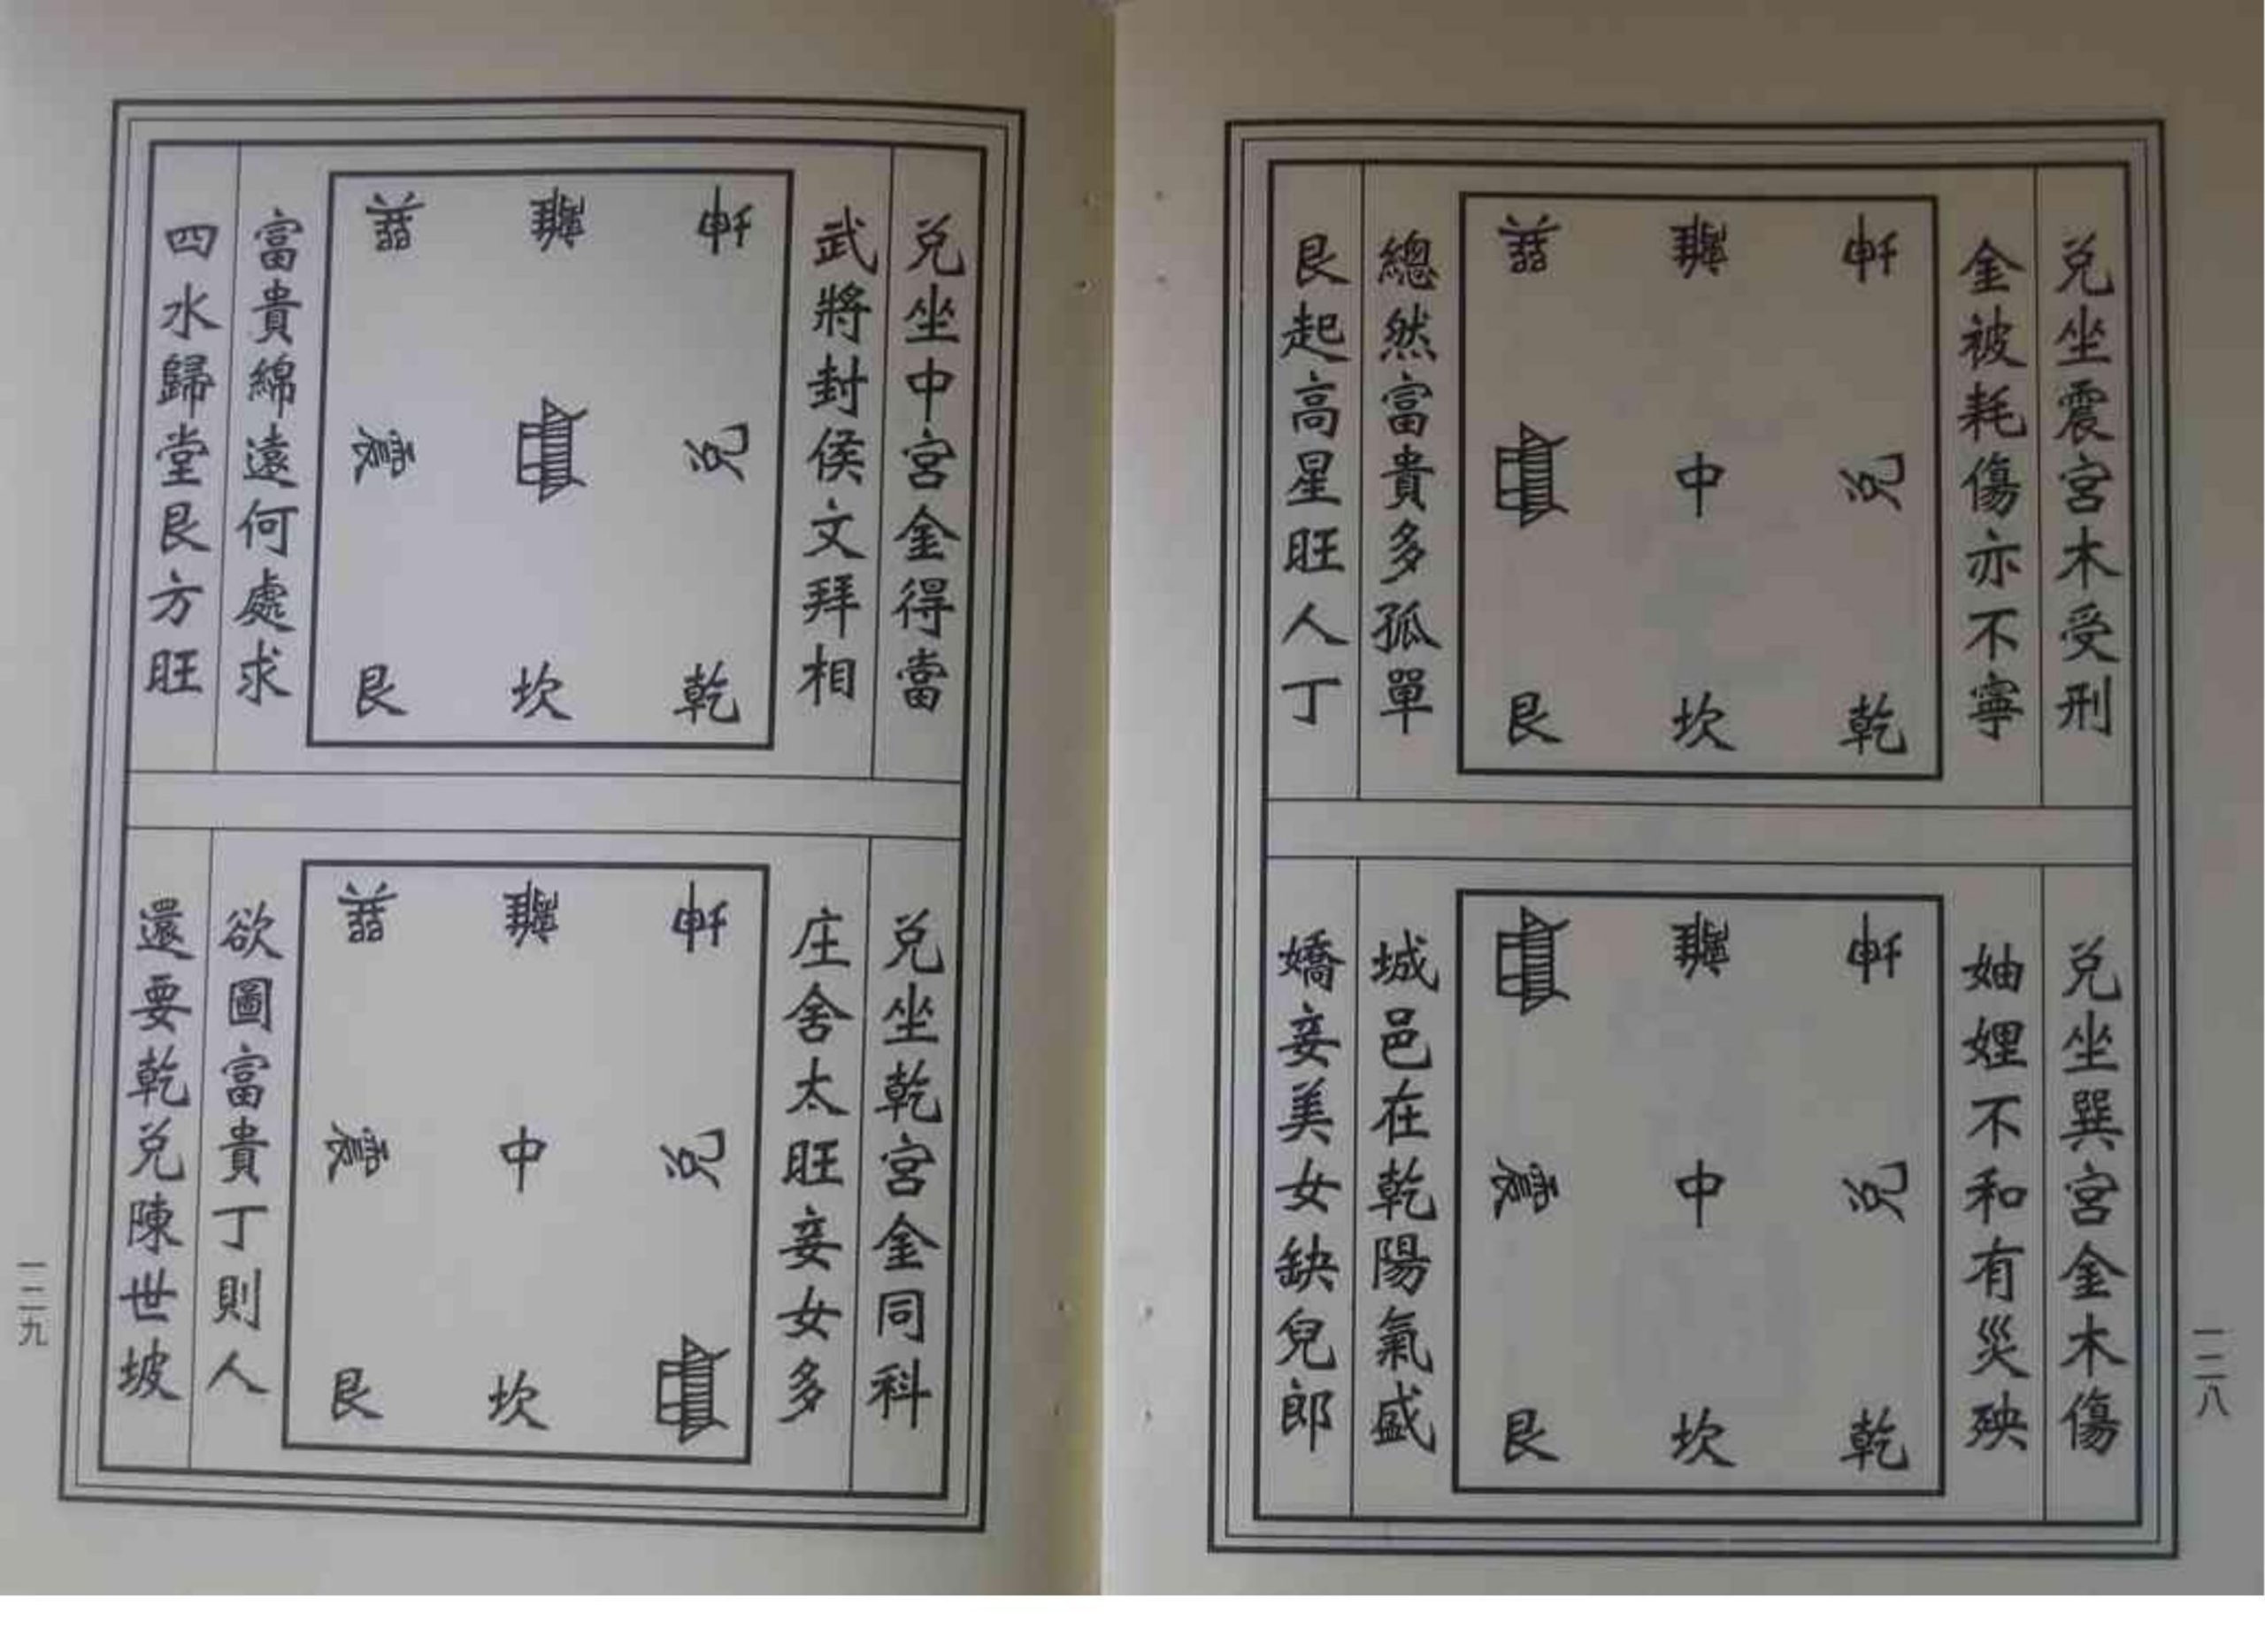 兌坐震宮木受刑
金被耗傷亦不寧
巽 離 坤
中 兌
艮 坎 乾
總然富貴多孤單
艮起高星旺人丁
兌坐巽宮金木傷
妯娌不和有災殃
離 坤
震 中 兌
艮 坎 乾
城邑在乾陽氣盛
嬌妾美女缺兒郎
一二八
兌坐中宮金得當
武將封侯文拜相
巽 離 坤
震 兌
艮 坎 乾
富貴綿遠何處求
四水歸堂艮方旺
兌坐乾宮金同科
庄舍太旺妾女多
巽 離 坤
震 中 兌
艮 坎
欲圖富貴丁則人
還要乾兌陳世坡
一二九